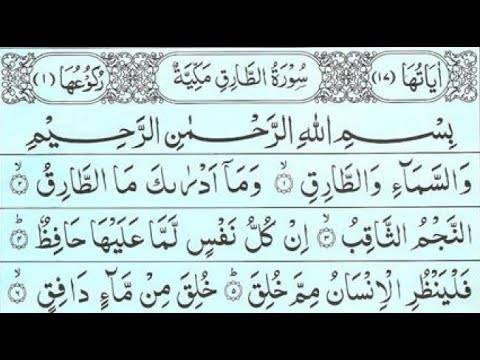 اٰيَاتُهَا (١٧) سُوْرَةُ الطَّارِقِ مَكِّيَّةٌ رُكُوْعُهَا (١)
بِسْمِ اللهِ الرَّحْمٰنِ الرَّحِيْمِ
وَالسَّمَآءِ وَالطَّارِقِ ۙ١ وَمَآ اَدْرٰىكَ مَا الطَّارِقُ ۙ٢
النَّجْمُ الثَّاقِبُ ۙ٣ اِنْ كُلُّ نَفْسٍ لَّمَّا عَلَيْهَا حَافِظٌ ؕ٤
فَلْيَنْظُرِ الْاِنْسَانُ مِمَّ خُلِقَ ؕ٥ خُلِقَ مِنْ مَّآءٍ دَافِقٍ ۙ٦